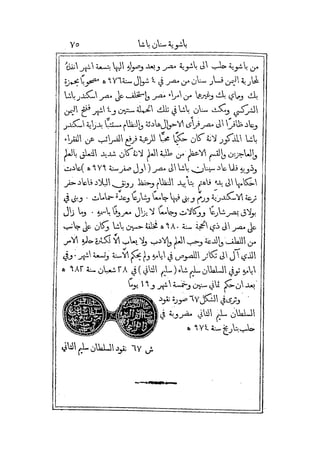 باشوية سنان باشا ٧٥
من باشوية حلب الى باشوية مصر وبعد وصوله اليها بتسعة اشهر انتدب
لمحاربة اليمن فسار سنان من مصر في ٤ شوال سنة ٩٧٦ مصحوبًا بحمزة
بك وماماي بك وغيرهما من امراء مصر واستخلف على مصر اسكندر باشا
الشركسي ومكث سنان باشا في تلك الحملة سنتين و٤ اشهر ففتح اليمن
وعاد ظافرًا الى مصر فرأى الاحوال هادئة والنظام مستتبًا بدراية اسكندر
باشا المذكور لانه كان حكيمًا محبًا للرعية فرفع الضرائب عن الفقراء
والعاجزين والقسم الاعظم من طلبة العلم لانه كان شديد التعلق بالعلم
وذويه فلما عاد سنان باشا الى مصر (اول صفر سنة ٩٧٩) عادت
احكامها الى يده فاهتم بتأييد النظام وحفظ رونق البلاد فاعاد حفر
ترعة الاسكندرية ورم وبنى فيها جامعًا وشارعًا وعدة حمامات. وبنى في
بولاق مصر شارعًا ووكالات وجامعًا لا يزال معروفًا باسمه. وما زال
على مصر الى ذي الحجة سنة ٩٨٠ فخلفه حسين باشا وكان على جانب
من اللطف والدعة وحب العلم والادب ولا يعاب الا لكثرة حلمه الامر
الذي آل الى تكاثر اللصوص في ايامه ولم يحكم الا سنة وتسعة اشهر. وفي
ايامه توفي السلطان سليم شاه (سليم الثاني) في ٢٨ شعبان سنة ٩٨٢
بعد ان حكم ثماني سنين وخمسة اشهر و١٩ يومًا
وترى في الشكل ٦٧ صورة نقود
السلطان سليم الثاني مضروبة في
حلب بتاريخ سنة ٩٧٤
ش ٦٧ نقود السلطان سليم الثاني